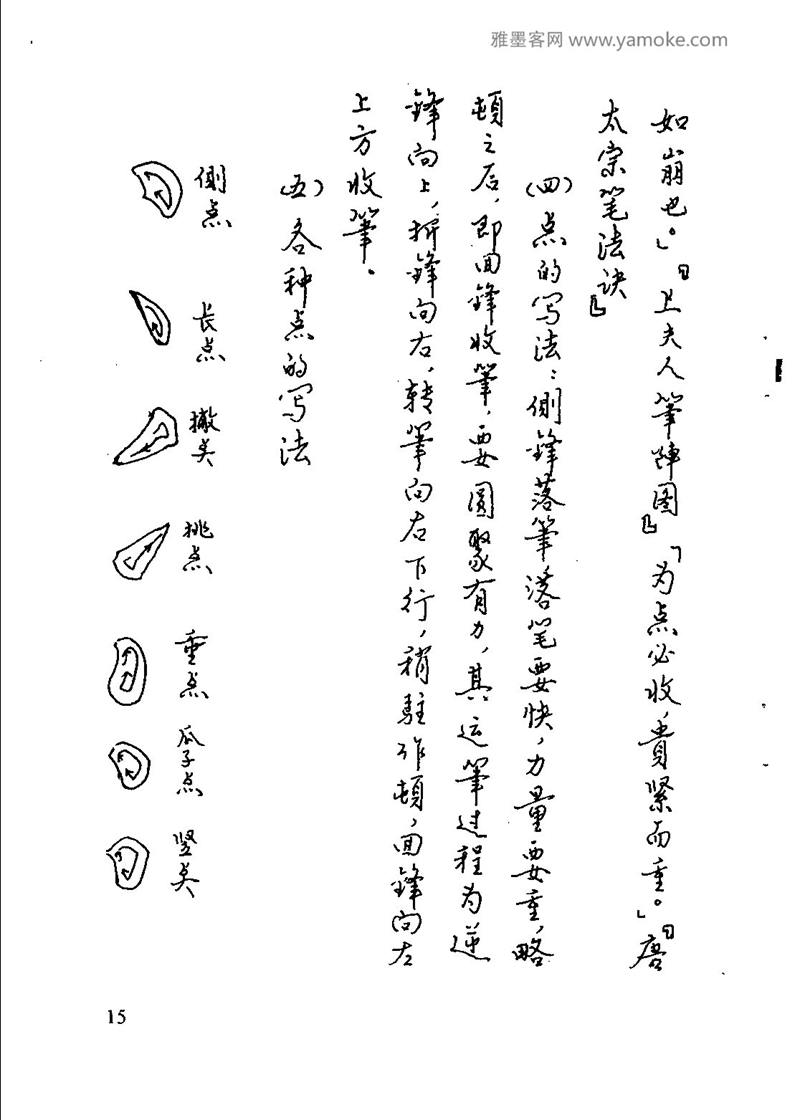 雅墨客网 www.yamoke.com
如崩也。」『卫夫人筆陣图』「为点必收,貴紧而重。」『唐
太宗笔法诀』
(四)点的写法:側鋒落筆落笔要快,力量要重,略
頓之后,即回鋒收筆,要圓聚有力,其运筆过程为逆
鋒向上,折鋒向右,转筆向右下行,稍駐作頓,回鋒向左
上方收筆。
(五)各种点的写法
側点
长点
撇点
挑点
垂点
瓜子点
竖点
15